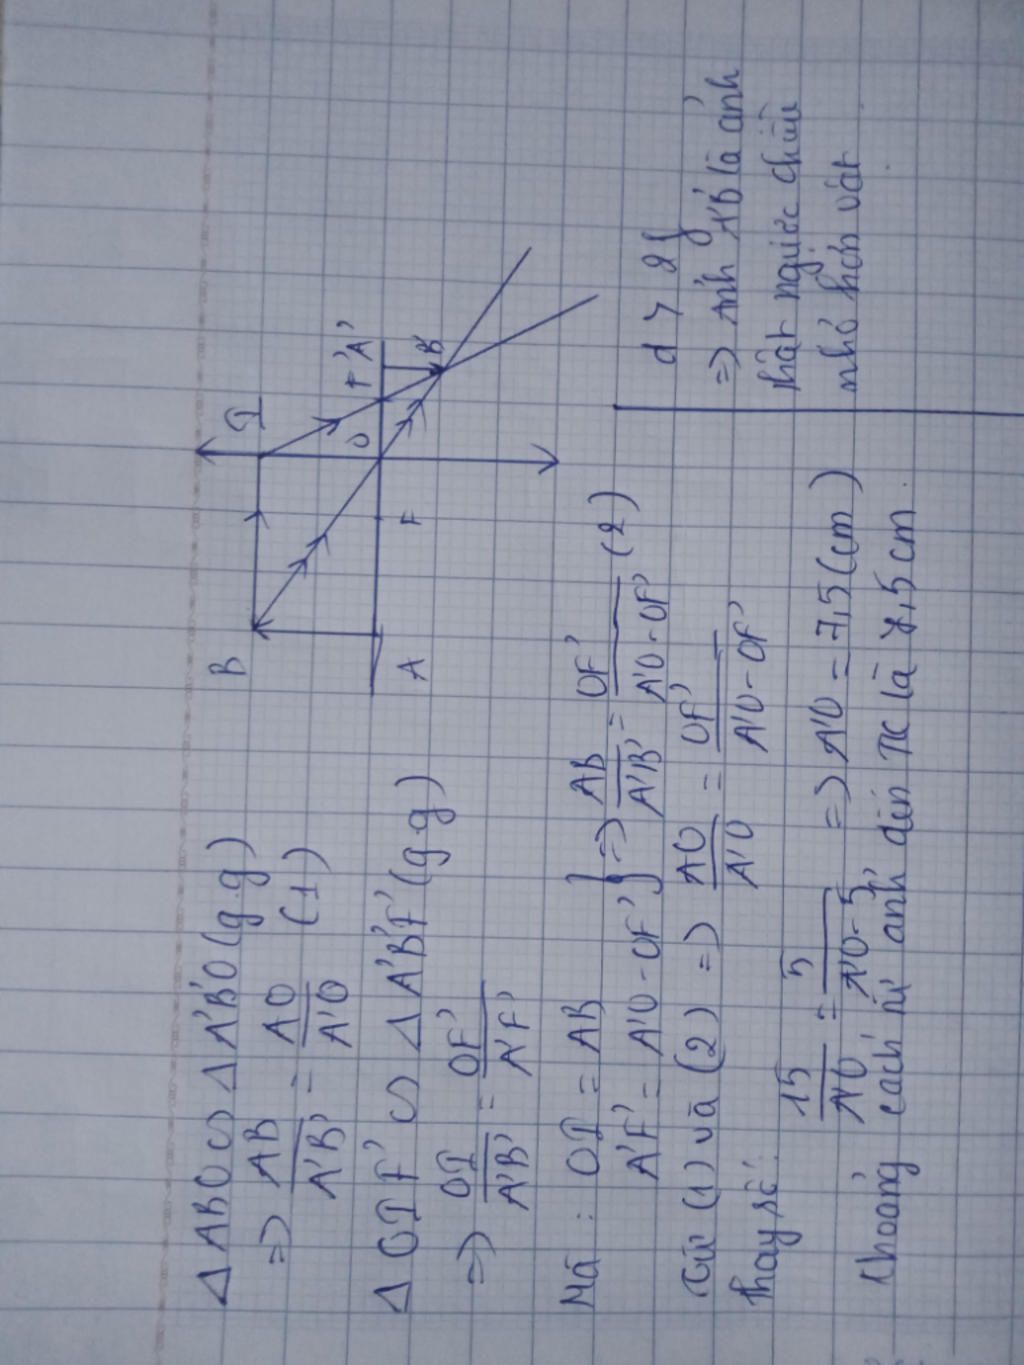 Δ ABO ∽ Δ A'B'O (g.g)
=> AB/A'B' = AO/A'O (1)
Δ OIF' ∽ Δ A'B'F' (g.g)
=> OI/A'B' = OF'/A'F'
Mà : OI = AB
A'F' = A'O - OF' } => AB/A'B' = OF'/A'O-OF' (2)
Từ (1) và (2) => AO/A'O = OF'/A'O-OF'
Thay số: 15/A'O = 5/A'O-5 => A'O = 7,5 (cm)
Khoảng cách từ ảnh đến TK là 7,5 cm.
B
I
O
F' A'
B'
F
A
d > 2f
=> Ảnh A'B' là ảnh
thật ngược chiều
nhỏ hơn vật